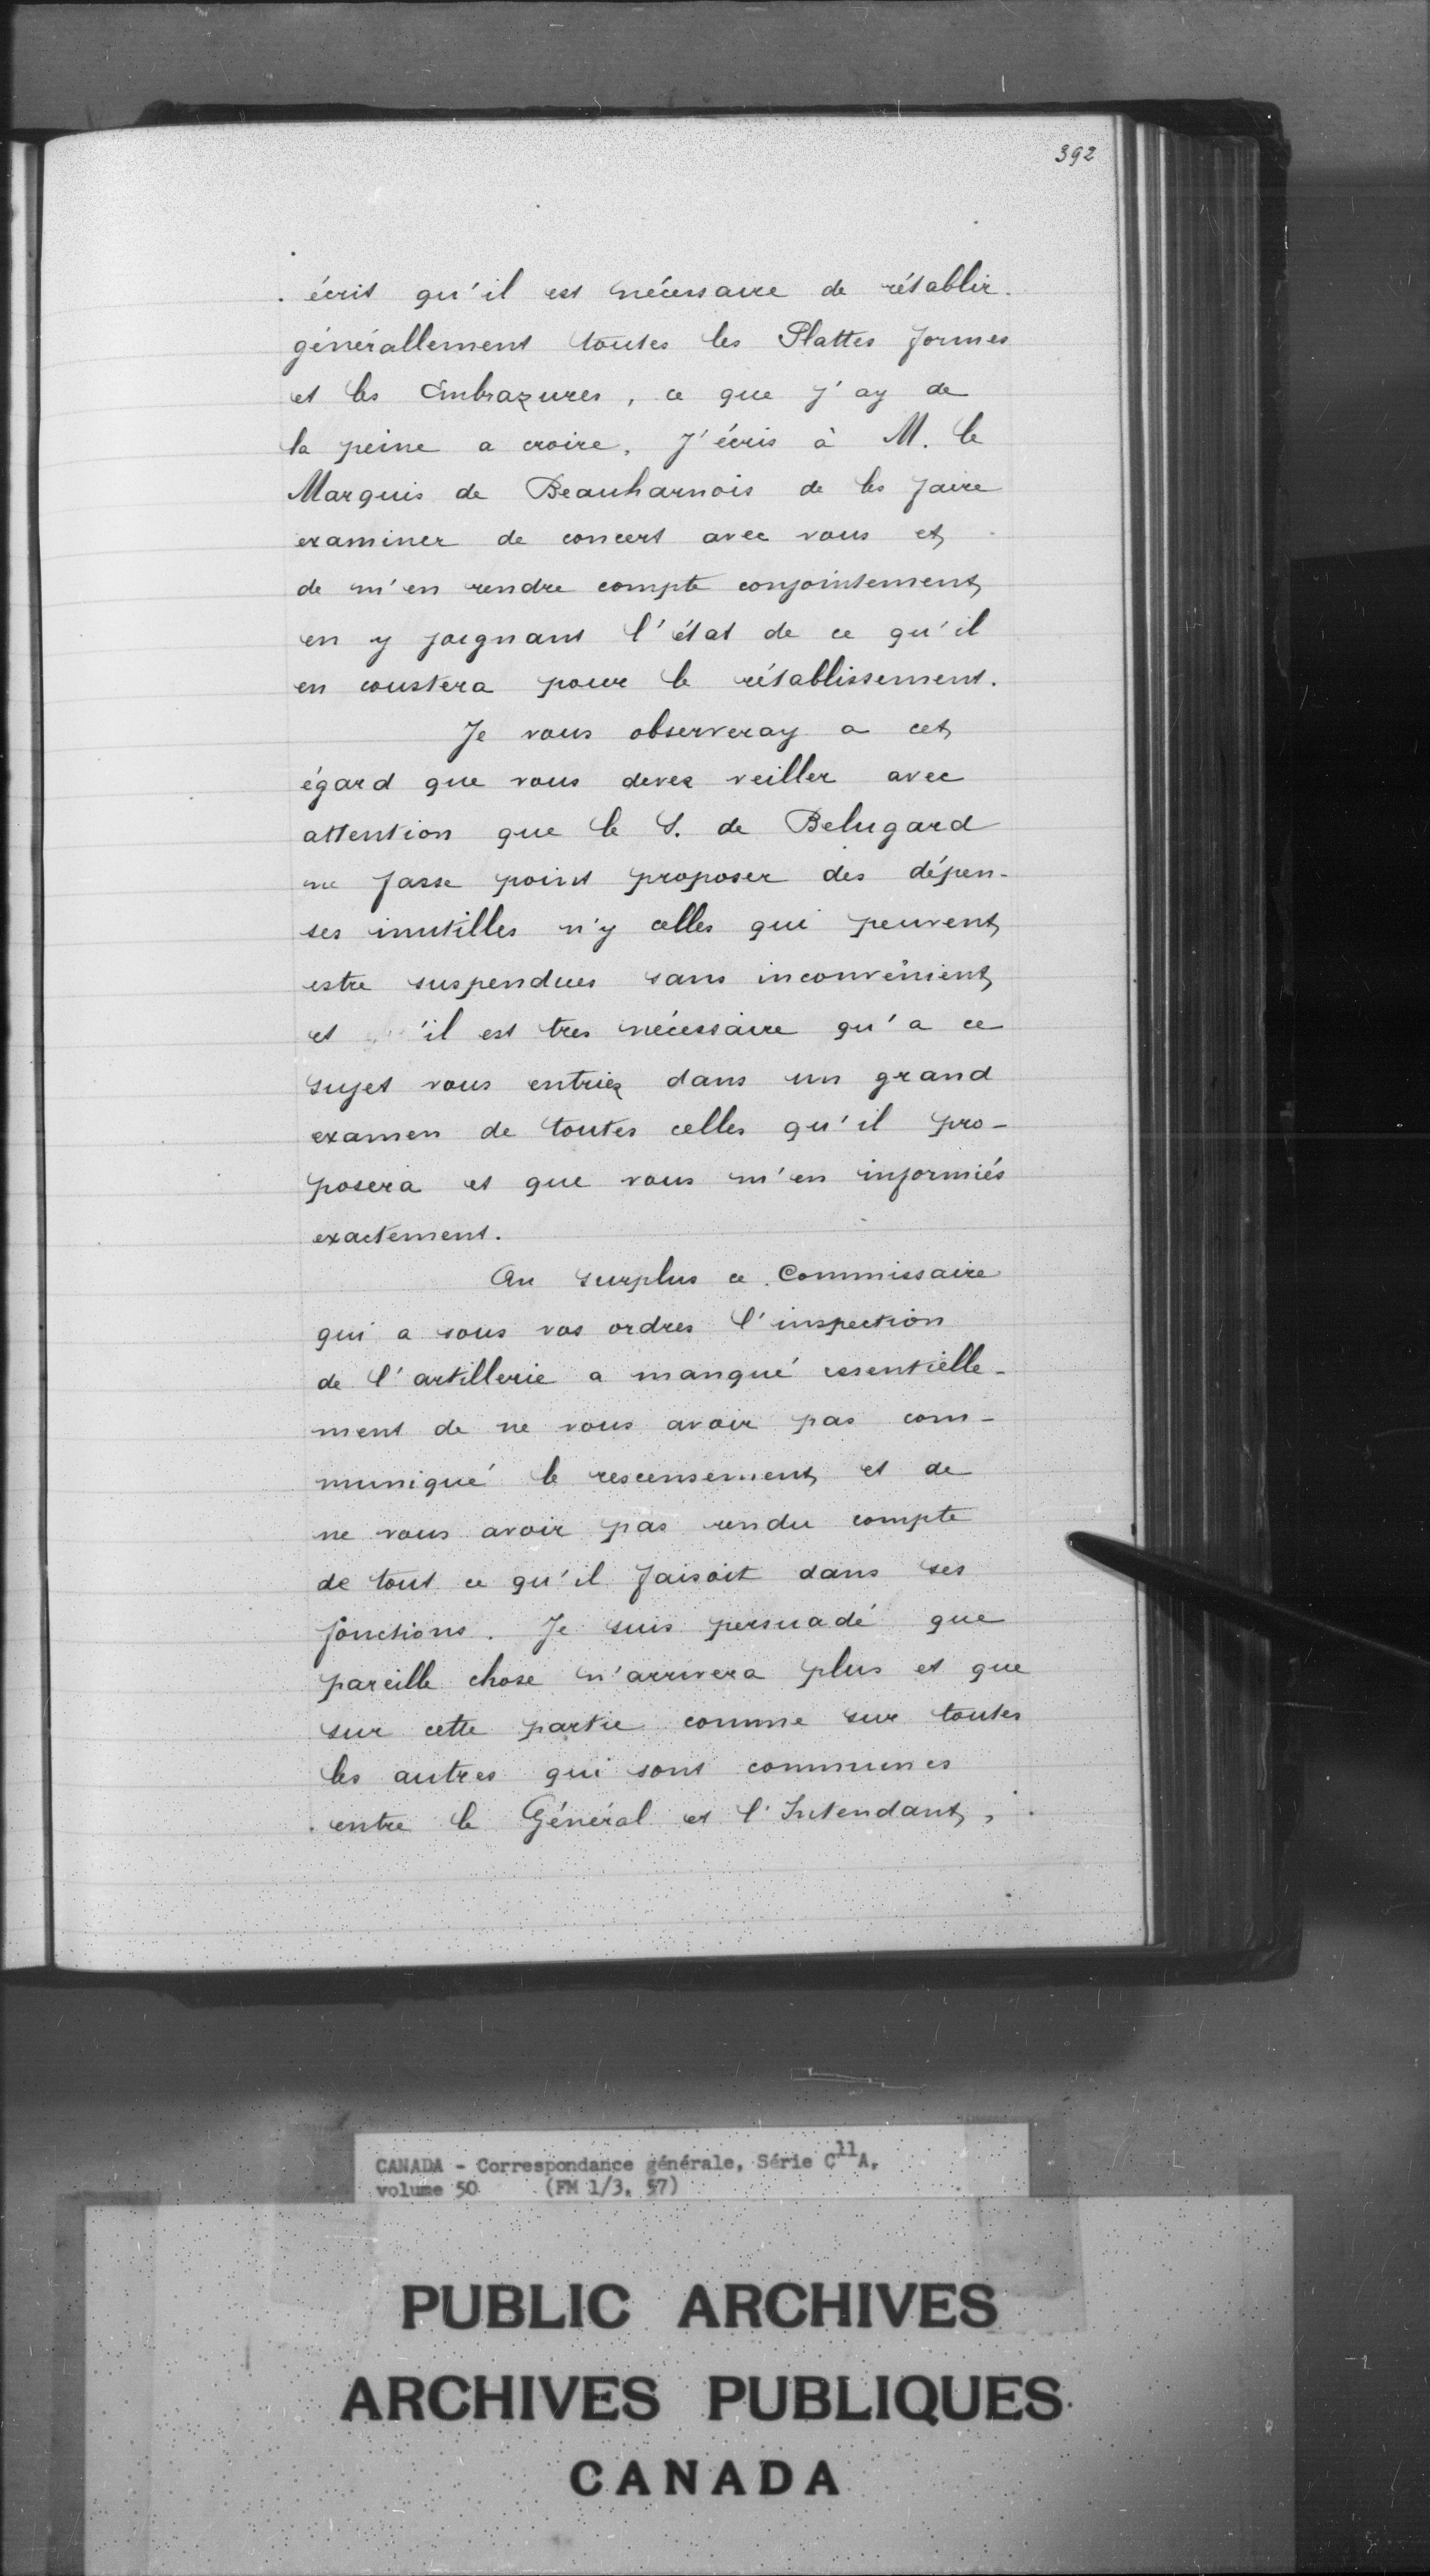 392
écrit qu'il est nécessaire de rétablir
générallement toutes les Plattes formes
et les Embrazures, ce que j'ay de
la peine a croire. J'écris à M. le
Marquis de Beauharnois de les faire
examiner de concert avec vous et
de m'en rendre compte conjointement
en y joignant l'état de ce qu'il
en coustera pour le rétablissement.
Je vous observeray a cet
égard que vous devez veiller avec
attention que le S. de Belugard
ne fasse point proposer des dépen-
ses inutilles n'y celles qui peuvent
estre suspendues sans inconvénient
et il est tres nécessaire qu'a ce
sujet vous entriez dans un grand
examen de toutes celles qu'il pro-
posera et que vous m'en informiés
exactement.
Au surplus ce Commissaire
qui a sous vos ordres l'inspection
de l'artillerie a manqué essentielle-
ment de ne vous avoir pas com-
muniqué le rescensement et de
ne vous avoir pas rendu compte
de tout ce qu'il faisoit dans ses
fonctions. Je suis persuadé que
pareille chose n'arrivera plus et que
sur cette partie comme sur toutes
les autres qui sont communes
entre le Général et l'Intendant,
CANADA - Correspondance générale, Série C11A,
volume 50 (FM 1/3, 57)
PUBLIC ARCHIVES
ARCHIVES PUBLIQUES
CANADA